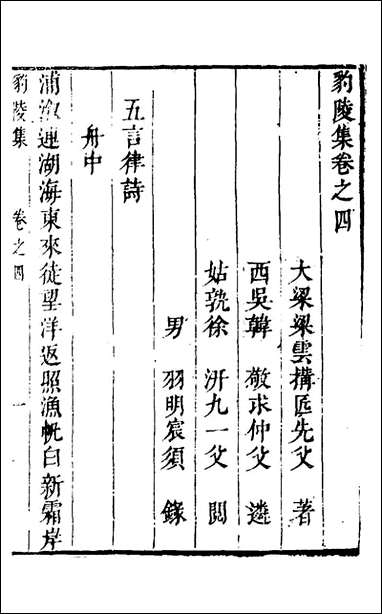 豹陵集卷之四
大梁梁雲搆匠先父　著
西吳韓　敬求仲父　遴
姑孰徐　汧九一父　閱
男　羽明宸須　錄
五言律詩
舟中
浦溆連湖海東來徒望洋返照漁帆白新霜岸
豹陵集　卷之四　一